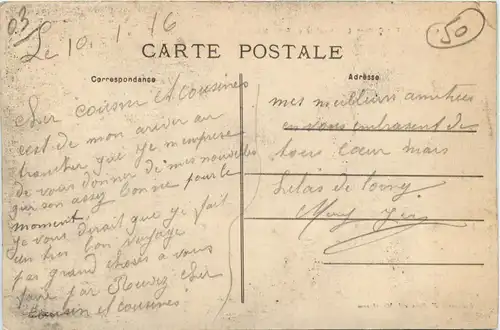 03
Le 10. 1. 16
50
CARTE POSTALE
Correspondance
Adresse
cher cousin et cousines
cest de mon ariver au
trancher que je m'empresse
de vous donner de mes nouvelles
qui son assez bonne pour le
moment
je vous dirait que je fait
un tres bon voyage
pas grand choses a vous
faire par
cher
cousin et cousines
mes meilleur amitiées
en vous embrasent de
tous cœur mais
helas de loing